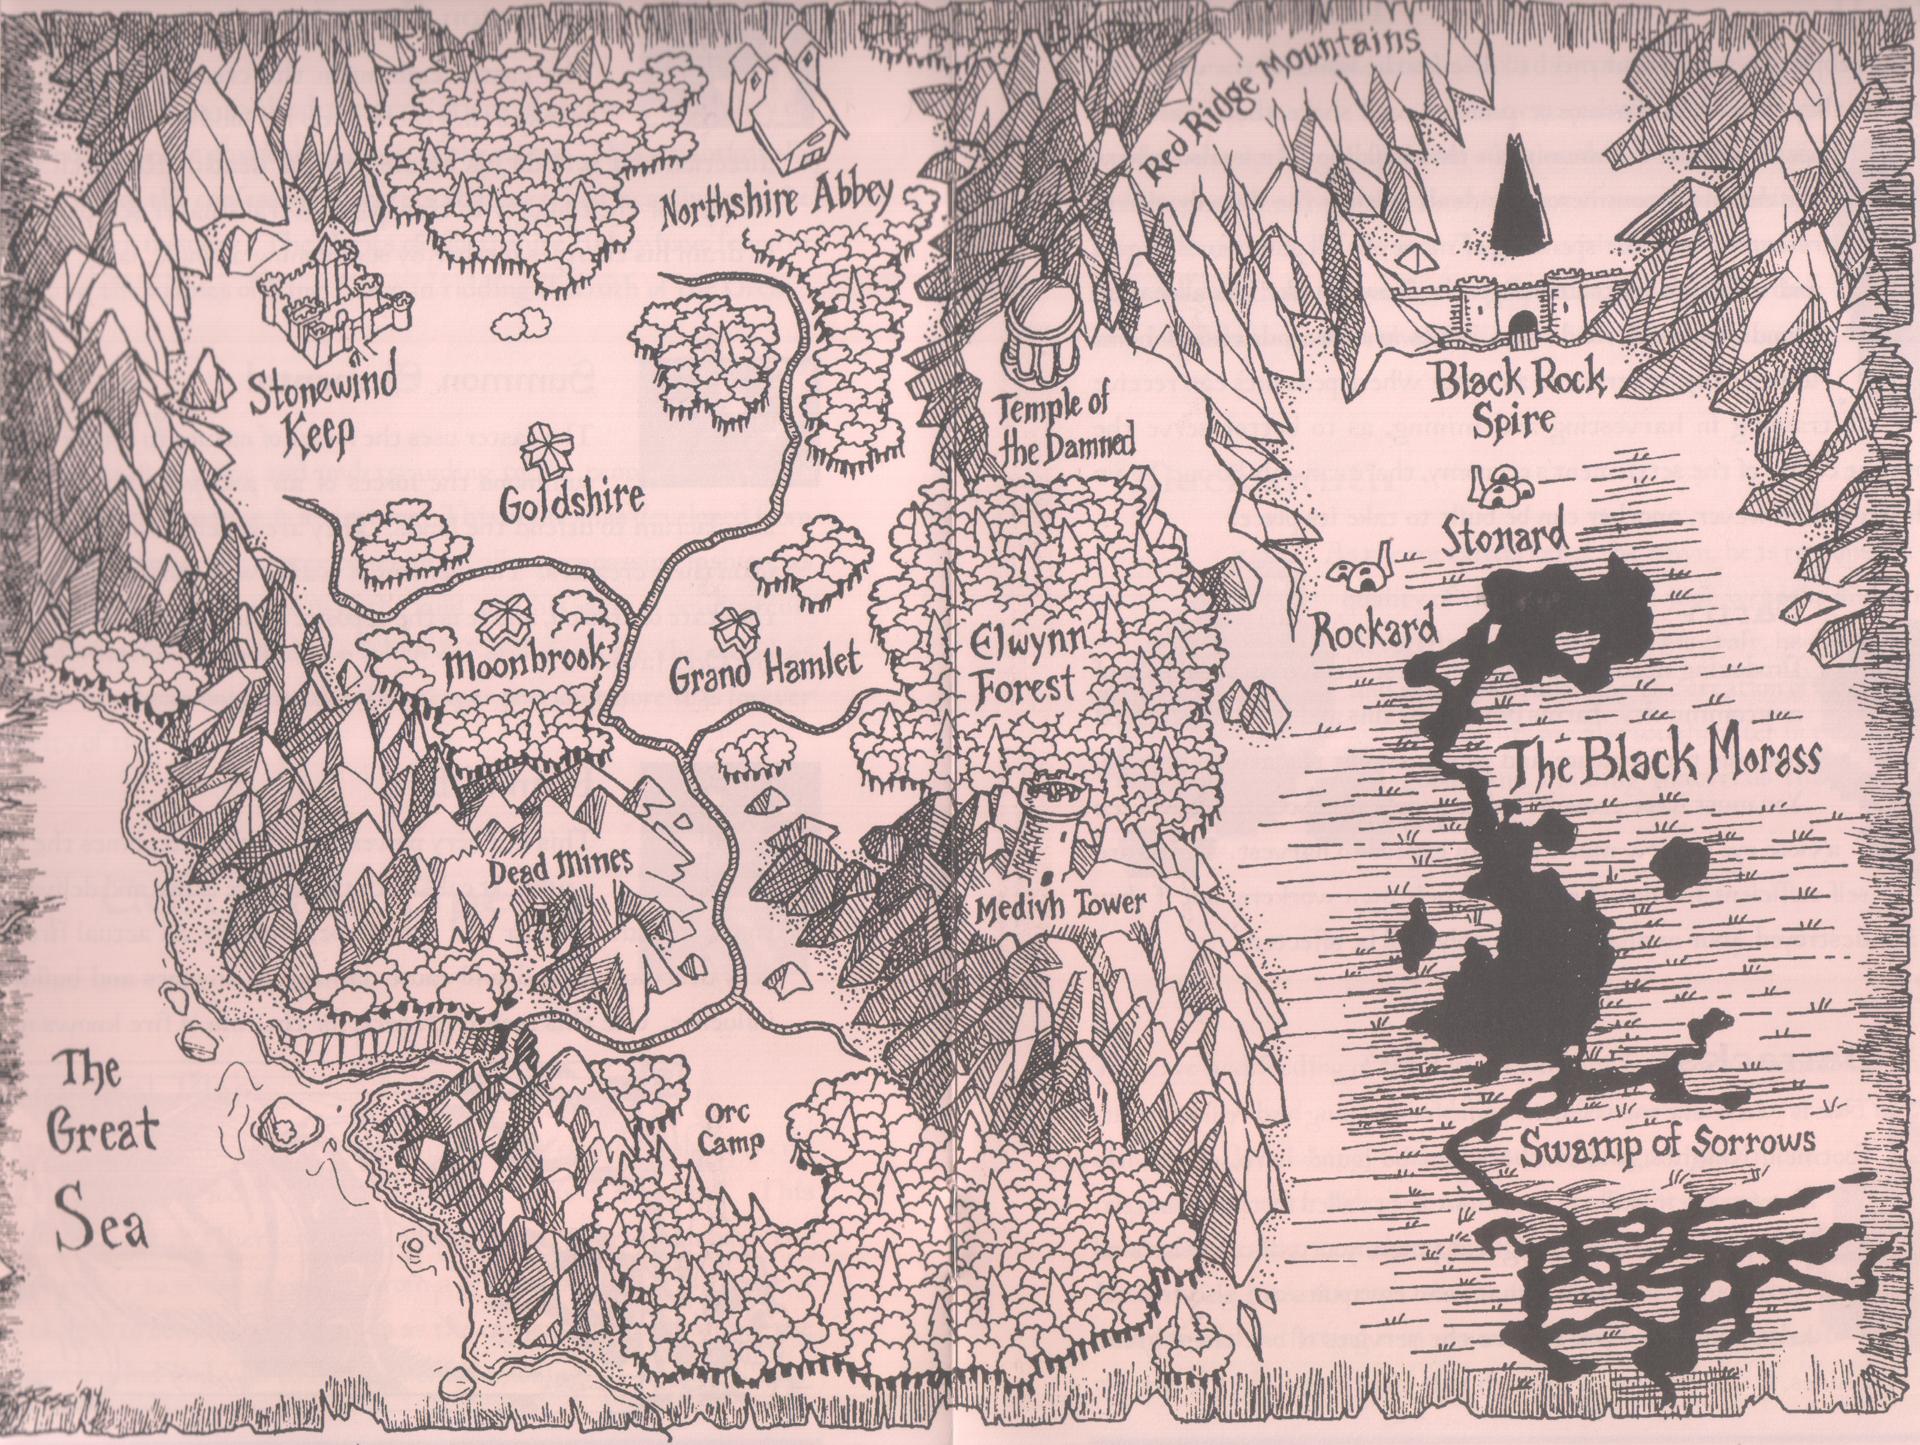 Red Ridge Mountains
Northshire Abbey
Stonewind
Keep
Black Rock
Spire
Temple of
the Damned
Goldshire
Stonard
Rockard
Moonbrook
Grand Hamlet
Elwynn
Forest
The Black Morass
Dead Mines
Medivh Tower
The
Great
Sea
Orc
Camp
Swamp of Sorrows